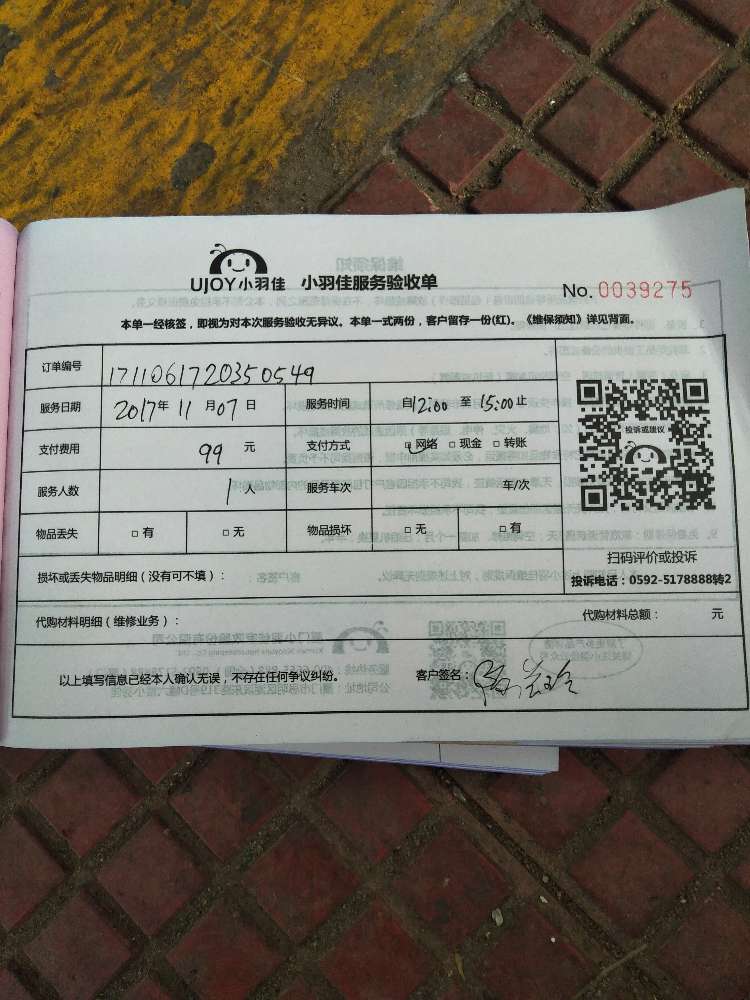 UJOY小羽佳 小羽佳服务验收单
No. 0039275
本单一经核签，即视为对本次服务验收无异议。本单一式两份，客户留存一份(红)。《维保须知》详见背面。
订单编号 1711061720350549
服务日期 2017年 11月 07日 服务时间 自12:00 至 15:00止
支付费用 99 元 支付方式 □网络 □现金 □转账
服务人数 1人 服务车次 年/次
物品丢失 □有 □无 物品损坏 □无 □有
投诉或建议
扫码评价或投诉
投诉电话：0592-5178888转2
损坏或丢失物品明细（没有可不填）：
代购材料明细（维修业务）： 代购材料总额： 元
以上填写信息已经本人确认无误，不存在任何争议纠纷。 客户签名：